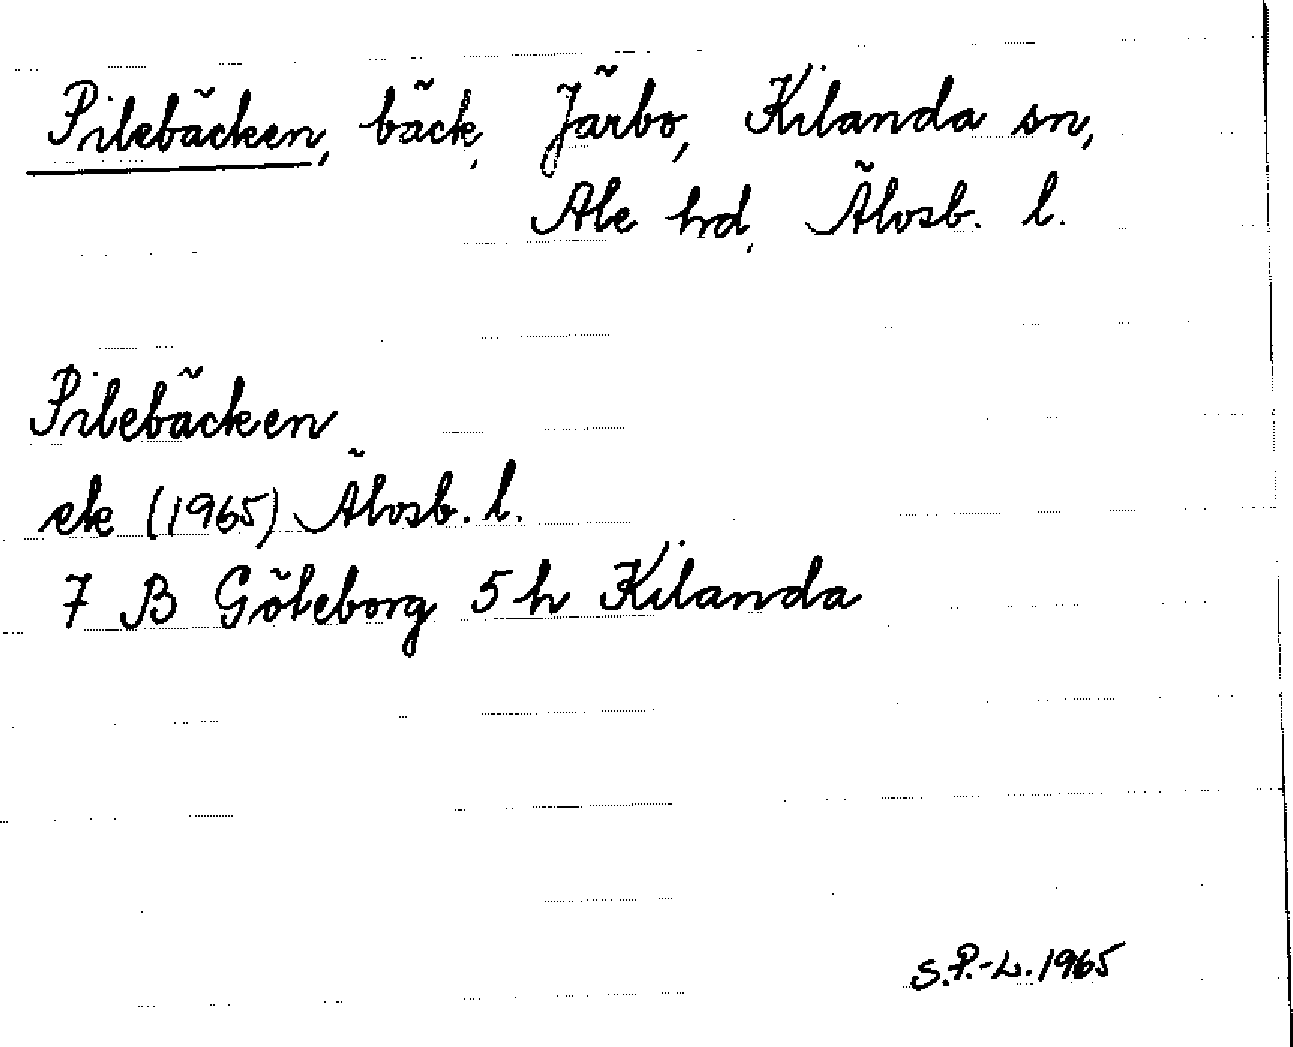 Pilebäcken, bäck, Järbo, Kilanda sn,
Ale hd, Älvsb. l.
Pilebäcken
ek (1965) Älvsb. l.
7 B Göteborg 5 h Kilanda
S.P.-L. 1965